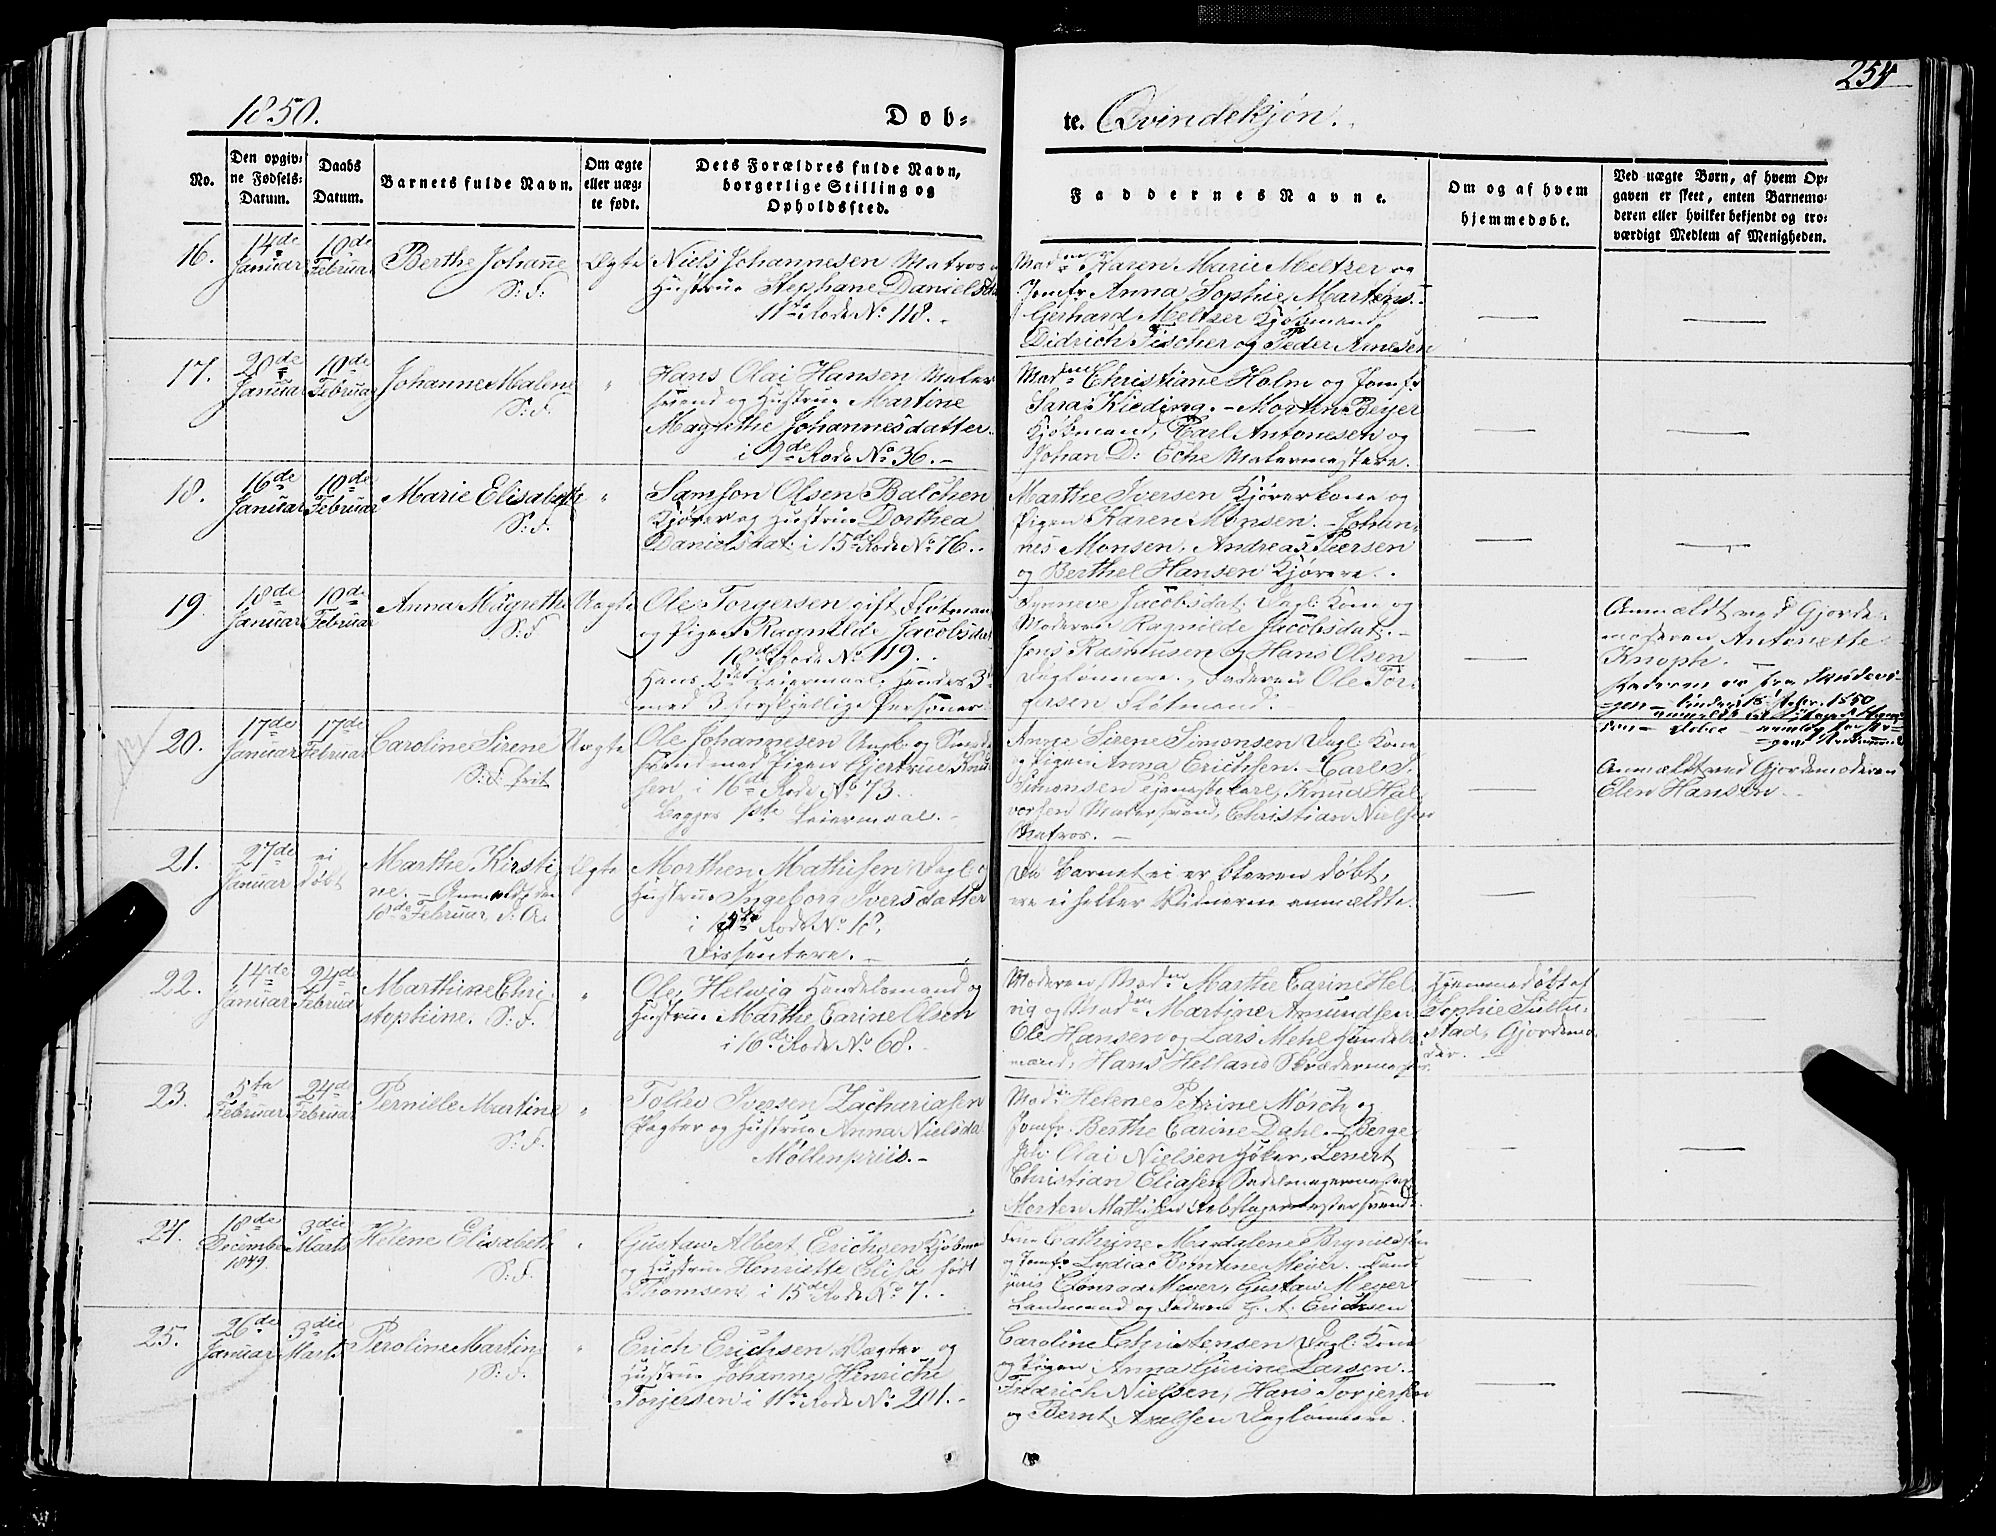 254
1850.
Døb-
te. Qvindekjøn.
No.
Den opgiv-
ne Fødsels-
Datum.
Daabs
Datum.
Barnets fulde Navn.
Om ægte
eller uæg-
te født.
Dets Forældres fulde Navn,
borgerlige Stilling og
Opholdssted.
Faddernes Navne.
Om og af hvem
hjemmedøbt.
Ved uægte Børn, af hvem Op-
gaven er skeet, enten Barnemo-
deren eller hvilket bekjendt og tro-
værdigt Medlem af Menigheden.
16.
14de
Januar
10de
Februar
Berthe Johanne
S: F:
Ægte
Niels Johannesen Matros
Hustrue Stephane Daniels
11te Rode No 118.
Madme Karen Marie Meltzer og
Jomfr Anna Sophie Martens.
Gerhard Meltzer Kjøbmand
Didrich Fischer og Peder Arnesen
17.
20de
Januar
10de
Februar
Johanne Malene
S: F.
"
Hans Olai Hansen Maler
svend og Hustrue Martine
Magrethe Johannesdatter
i 9de Rode No 36.
Madme Christiane Holm og Jomfr
Sara Kieding. - Morten Beyer
Kjøbmand, Carl Antonesen og
Johan D: Eche Malermestere.
18.
16de
Januar
10de
Februar
Marie Elisabeth
S: F.
"
Samson Olsen Balchen
Kjører og Hustrue Dorthea
Danielsdat: i 15de Rode No 76.
Marthe Iversen Kjørerkone og
Pigen Karen Monsen. - Johan-
nes Monsen, Andreas Peersen
og Berthel Hansen Kjørere.
19.
18de
Januar
10de
Februar
Anna Magrethe
S: F
Uægte
Ole Torgersen gift Fløtmand
og Pigen Ragnilde Jacobsdat
18de Rode No 119.
Hans 2det Leiermaal, hendes 3die
med 3 forskjellige Personer
Synneve Jacobsdat: Dagl: Kone og
Moderen Ragnilde Jacobsdat. -
Jens Rasmusen og Hans Olsen
Daglønnere, Faderen Ole Tor-
gersen Fløtmand.
Anmældt ved Gjorde-
moderen Antonette
Knoph. -
20.
17de
Januar
17de
Februar
Caroline Sirene
S: F. frit
Uægte
Ole Johannesen Ungk. og Smede
svend med Pigen Gjertrue Knud
sen, i 16de Rode No 73.
begges 1ste Leiermaal. -
Anne Sirene Simonsen Dagl: Kone
og Pigen Anna Erichsen. - Carl S.
Simonsen Tjenestekarl, Knud Hal-
vorsen Malersvend, Christian Nielsen
Matros. -
Anmældt ved Gjordemoderen
Elen Hansen.
21.
27de
Januar
ei
døbt
Marthe Kirsti-
ne. - Anmeldt den
18de Februar d. A.
Ægte
Morthen Mathisen Dagl: og
Hustrue Ingeborg Iversdatter
i Rode No 18,
Dissentere. -
Da barnet ei er bleven døbt,
ere ei heller Vidnerne anmældte.
22.
14de
Januar
24de
Februar
Marthine Chri-
stophine. S: F.
"
Ole Helwig Handelsmand og
Hustrue Marthe Carine Olsen
i 16de Rode No 68. -
Moderen, Madme Marthe Carine Hel-
vig og Madme Martine Amundsen
Ole Hansen og Lars Mehl Handels-
mænd, Hans Helland Skrædermester
Hjemmedøbt af
Sophie Sultu-
stad, Gjordemo-
der.
23.
5te
Februar
24de
Februar
Perniele Martine
S: F.
"
Tollev Iversen Zachariasen
Vægter og Hustrue Anna Nielsda
Møllenpriis. -
Madme Helene Petrine Mörch og
Jomfr. Berthe Carine Dahl. - Berge
Olai Nielsen Høker, Lenert
Christian Eliasen Sadelmagermester
Morten Mathisen
24.
18de
December
1849.
3die
Marts
Helene Elisabeth
S: F.
"
Gustav Albert Erichsen Kjøbmand
og Hustrue Henriette Elise født
Thomsen i 15de Rode No 7.
Fru Cathrine Magdalene Brynildsen
og Jomfr Lydia Berntine Meyer.
Conrad Meyer, Gustav Meyer
Landmand og Faderen G. A. Erichsen
25.
26de
Januar
3die
Marts
Peroline Martine
S: F.
"
Erich Erichsen Vægter og
Hustrue Johanne Henriche
Torjersen i 11te Rode No 201. -
Caroline Christensen Dagl: Kone
og Pigen Anna Gurine Larsen.
Fredrich Nielsen, Hans Torjersen
og Bernt Axelsen Daglønnere.